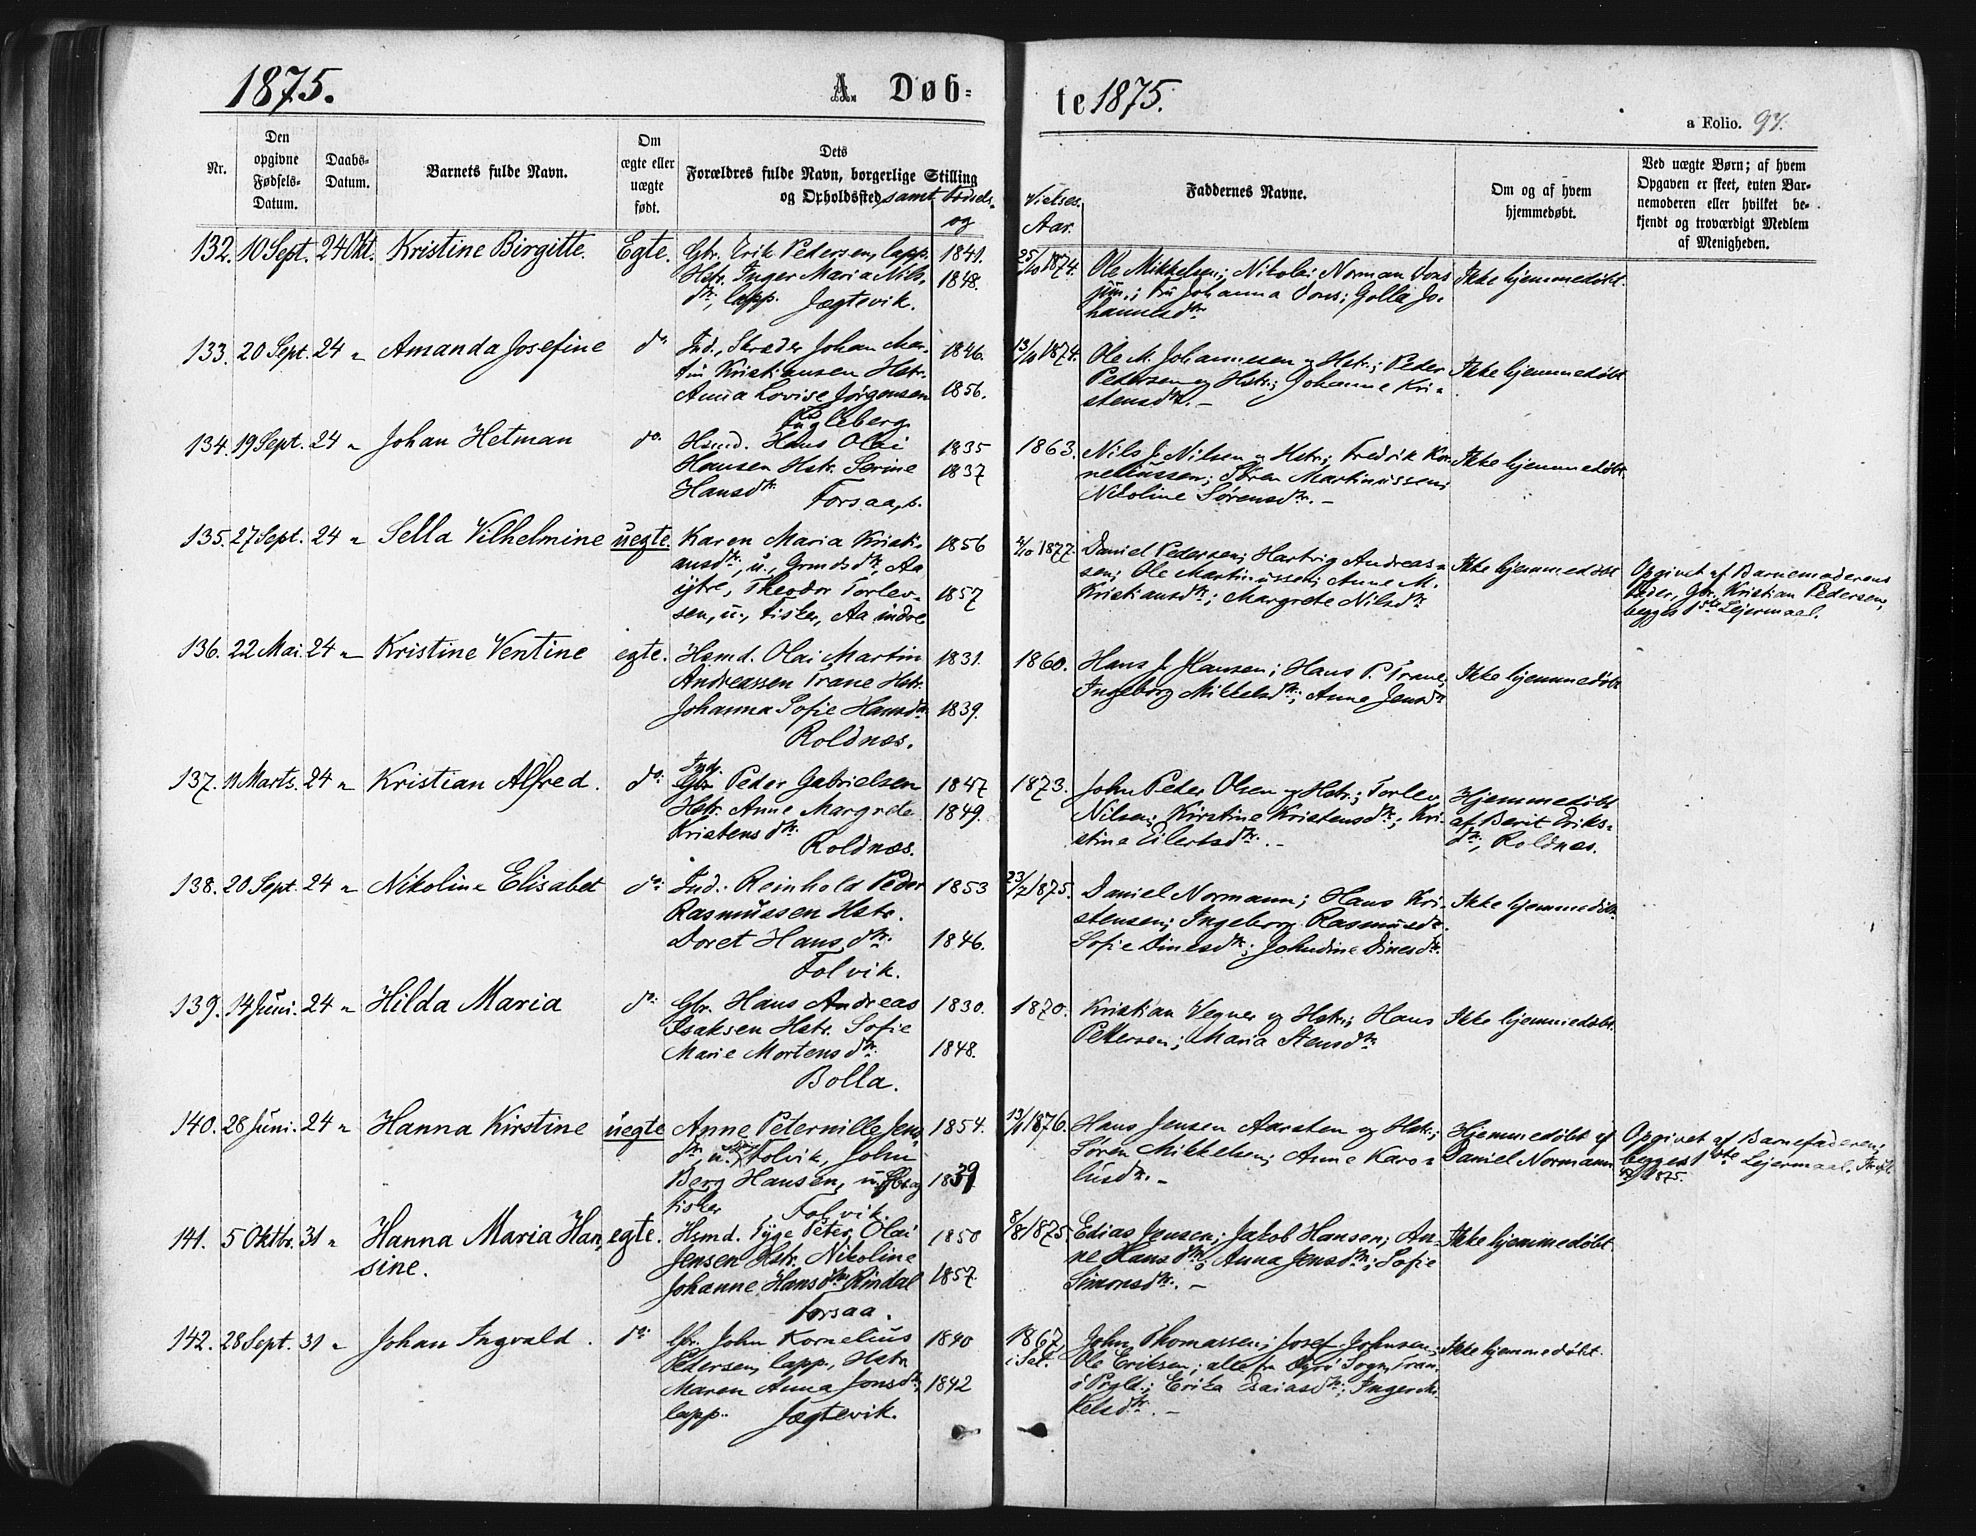 1875.
A. Døb-
te 1875.
a Folio. 97.
Nr.
Den opgivne Fødsels-Datum.
Daabs-Datum.
Barnets fulde Navn.
Om ægte eller uægte født.
Dets Forældres fulde Navn, borgerlige Stilling og Opholdssted samt Fødsels-
og
Vielses
Aar.
Faddernes Navne.
Om og af hvem hjemmedøbt.
Ved uægte Børn; af hvem Opgaven er skeet, enten Barnemoderen eller hvilket bekjendt og troværdigt Medlem af Menigheden.
132. 10 Sept. 24 Okt. Kristine Birgitte. Egte. Gbr. Erik Pedersen, lapp. 1841.
Hstr. Inger Maria Nils- 1848.
dtr., lapp. Jægtevik.
25/10 1874. Ole Mikkelsen; Nikolai Norman Dons
jun.; Fru Johanna Dons; Golla Jo-
hannesdtr.
Ikke hjemmedøbt.
133. 20 Sept. 24 " Amanda Josefine do. Ind., Skræder Johan Mar- 1846.
tin Kristiansen Hstr.
Anna Lovise Jørgensen 1856.
Fugleberg
1874. Ole M. Johannesen og Hstr.; Peder
Petersen og Hstr.; Johanne Kri-
stensdtr. -
Ikke hjemmedøbt
134. 19 Sept. 24 " Johan Hetman do. Hsmd. Hans Olai 1835
Hansen Hstr. Serine 1837
Hansdtr. Forsaa,
1863. Nils J. Nilsen og Hstr.; Fredrik Kor-
neliussen; Søren Martinussen;
Nikoline Sørensdtr. -
Ikke hjemmedøbt.
135. 27 Sept. 24 " Sella Vilhelmine uegte. Karen Maria Kristi- 1856
ansdtr., u., Grmdsdtr., Aa
ytre, Theodor Torlev- 1857
sen, u., Fisker, Aa indre
1877. Daniel Pedersen; Hartvig Andreas-
sen; Ole Martinussen; Anne M.
Kristiansdtr.; Margrete Nilsdtr.
Ikke hjemmedøbt
Opgivet af Barnemoderens
Fader, Gbr. Kristian Pedersen,
begges 1ste Lejermaal.
136. 22 Mai. 24 " Kristine Ventine egte. Hsmd. Olai Martin 1831.
Andreassen Trane Hstr.
Johanna Sofie Hansdtr. 1839.
Roldnæs.
1860. Hans J. Hansen; Hans P. Trane,
Ingeborg Mikkelsdtr.; Anne Jensdtr
Ikke hjemmedøbt
137. 11 Marts. 24 " Kristian Alfred. do. Ind.
Gbr. Peder Gabrielsen 1847
Hstr. Anne Margrete 1849.
Kristensdtr.
Roldnæs.
1873. John Peder Olsen og Hstr.; Torlev
Nilsen; Kirstine Kristensdtr.; Kri-
stine Eilertsdtr. -
Hjemmedøbt
af Berit Eriks-
dtr., Roldnæs.
138. 20 Sept. 24 " Nikoline Elisabet do. Ind. Reinhold Peder 1853
Rasmussen Hstr.
Doret Hansdtr. 1846.
Tolvik.
23/2 1875. Daniel Normann; Hans Kri-
stensen; Ingeborg Rasmusdtr.
Sofie Dinesdtr.; Johndine Dinesdtr.
Ikke hjemmedøbt.
139. 14 Juni. 24 " Hilda Maria do. Gbr. Hans Andreas 1830.
Isaksen Hstr. Sofie
Marie Mortensdtr. 1848.
Bolla.
1870. Kristian Vegner og Hstr.; Hans
Pettersen; Maria Stensdtr.
Ikke hjemmedøbt.
140. 28 Juni. 24 " Hanna Kirstine uegte Anne Peternille Jens- 1854.
dtr., u. Tolvik, John
Berg Hansen, u. Gbr. og 1839
Fisker, Tolvik.
1876. Hans Jensen Aarsten og Hstr.;
Søren Mikkelsen; Anne Karo-
lusdtr. -
Hjemmedøbt af
Daniel Normann
Opgivet af Barnefaderen;
begges 1ste Lejermaal.
1875.
141. 5 Oktbr. 31 " Hanna Maria Han- egte. Hsmd. Tyge Peter Olai 1850
sine. Jensen Hstr. Nikoline
Johanne Hansdtr. Rindal 1857.
Forsaa.
8/8 1875 Edias Jensen; Jakob Hansen; An-
ne Hansdtr.; Anna Jensdtr.; Sofie
Simonsdtr. -
Ikke hjemmedøbt
142. 28 Sept. 31 " Johan Ingvald. do. Gbr. John Kornelius 1840
Pedersen, lapp., Hstr.
Maren Anna Jonsdtr., 1842
lapp. Jægtevik.
1867 John Thomassen; Josef Johnsen;
Ole Eriksen; alle fra Gyrø Sogn, Tran-
ø Prgld.; Erika Esaiasdtr.; Inger Mi-
kelsdtr. -
Ikke hjemmedøbt.